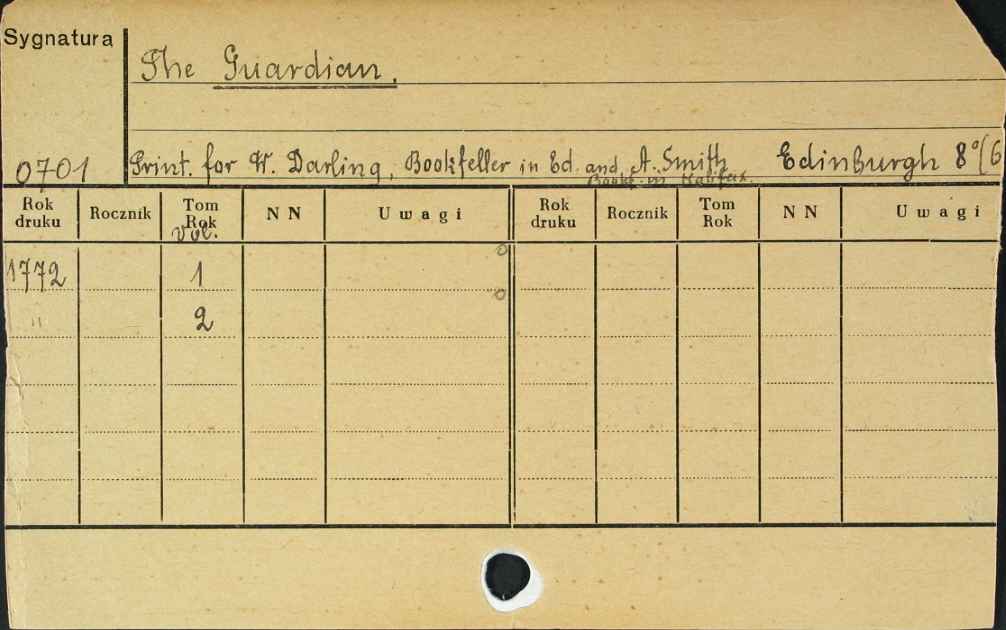 Sygnatura
The Guardian.
0701 Print. for W. Darling, Bookſeller in Ed. and A. Smith Edinburgh 8°/6
Bookſ. in Halifax.
Rok druku Rocznik Tom Rok N N Uwagi Rok druku Rocznik Tom Rok N N Uwagi
vol.
1772 1
" 2